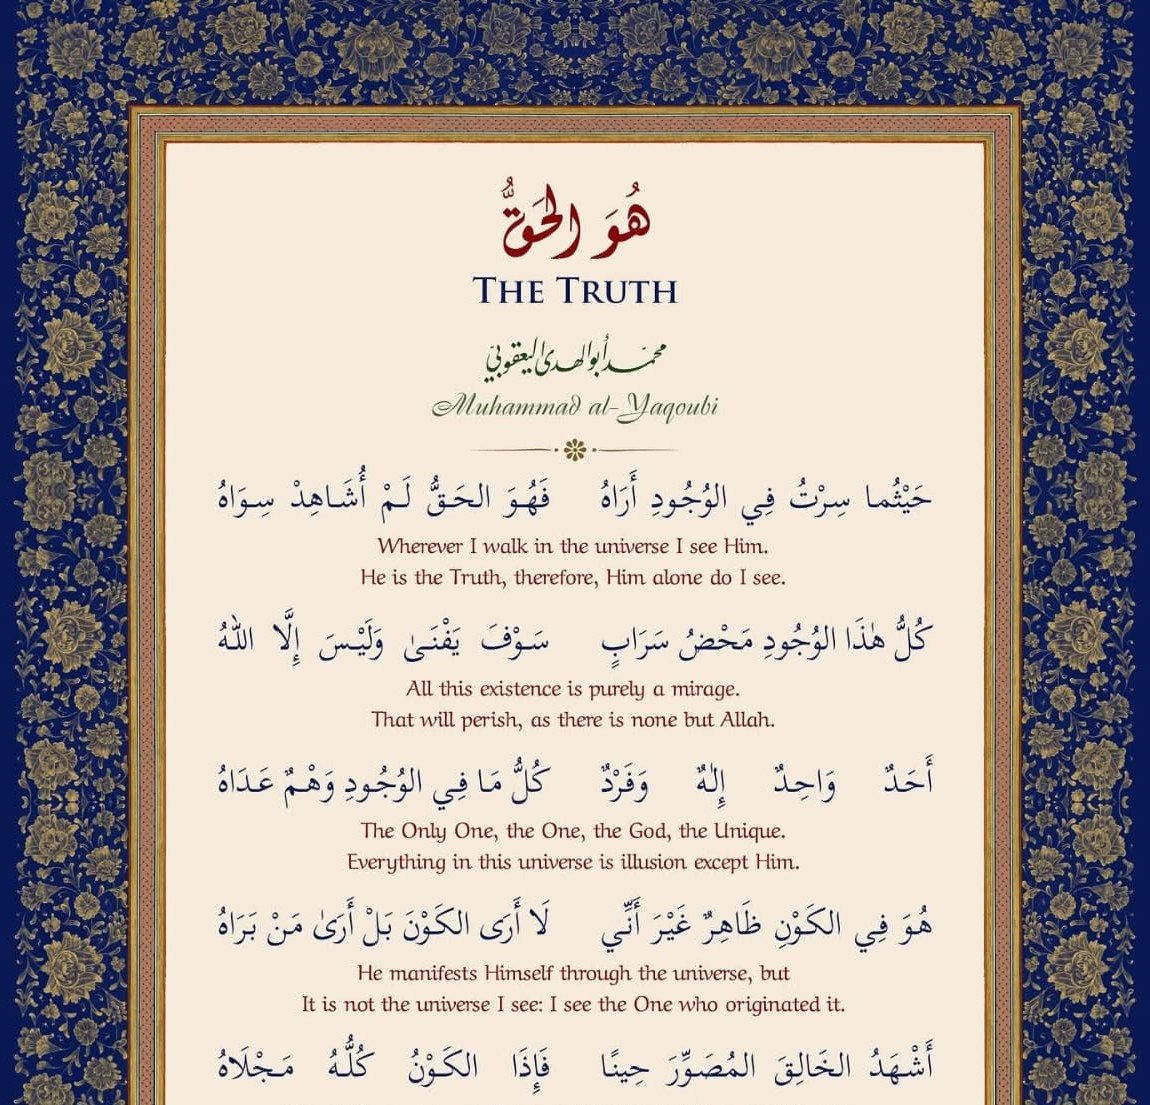 هُوَ الحَقُّ
THE TRUTH
محمّد أبو الهدى اليعقوبيّ
Muhammad al-Yaqoubi
حَيْثُما سِرْتُ فِي الوُجُودِ أَرَاهُ فَهُوَ الحَقُّ لَمْ أُشَاهِدْ سِوَاهُ
Wherever I walk in the universe I see Him.
He is the Truth, therefore, Him alone do I see.
كُلُّ هٰذَا الوُجُودِ مَحْضُ سَرَابٍ سَوْفَ يَفْنَىٰ وَلَيْسَ إِلَّا اللهُ
All this existence is purely a mirage.
That will perish, as there is none but Allah.
أَحَدٌ وَاحِدٌ إِلٰهٌ وَفَرْدٌ كُلُّ مَا فِي الوُجُودِ وَهْمٌ عَدَاهُ
The Only One, the One, the God, the Unique.
Everything in this universe is illusion except Him.
هُوَ فِي الكَوْنِ ظَاهِرٌ غَيْرَ أَنِّي لَا أَرَى الكَوْنَ بَلْ أَرَىٰ مَنْ بَرَاهُ
He manifests Himself through the universe, but
It is not the universe I see: I see the One who originated it.
أَشْهَدُ الخَالِقَ المُصَوِّرَ حِينًا فَإِذَا الكَوْنُ كُلُّهُ مَجْلَاهُ